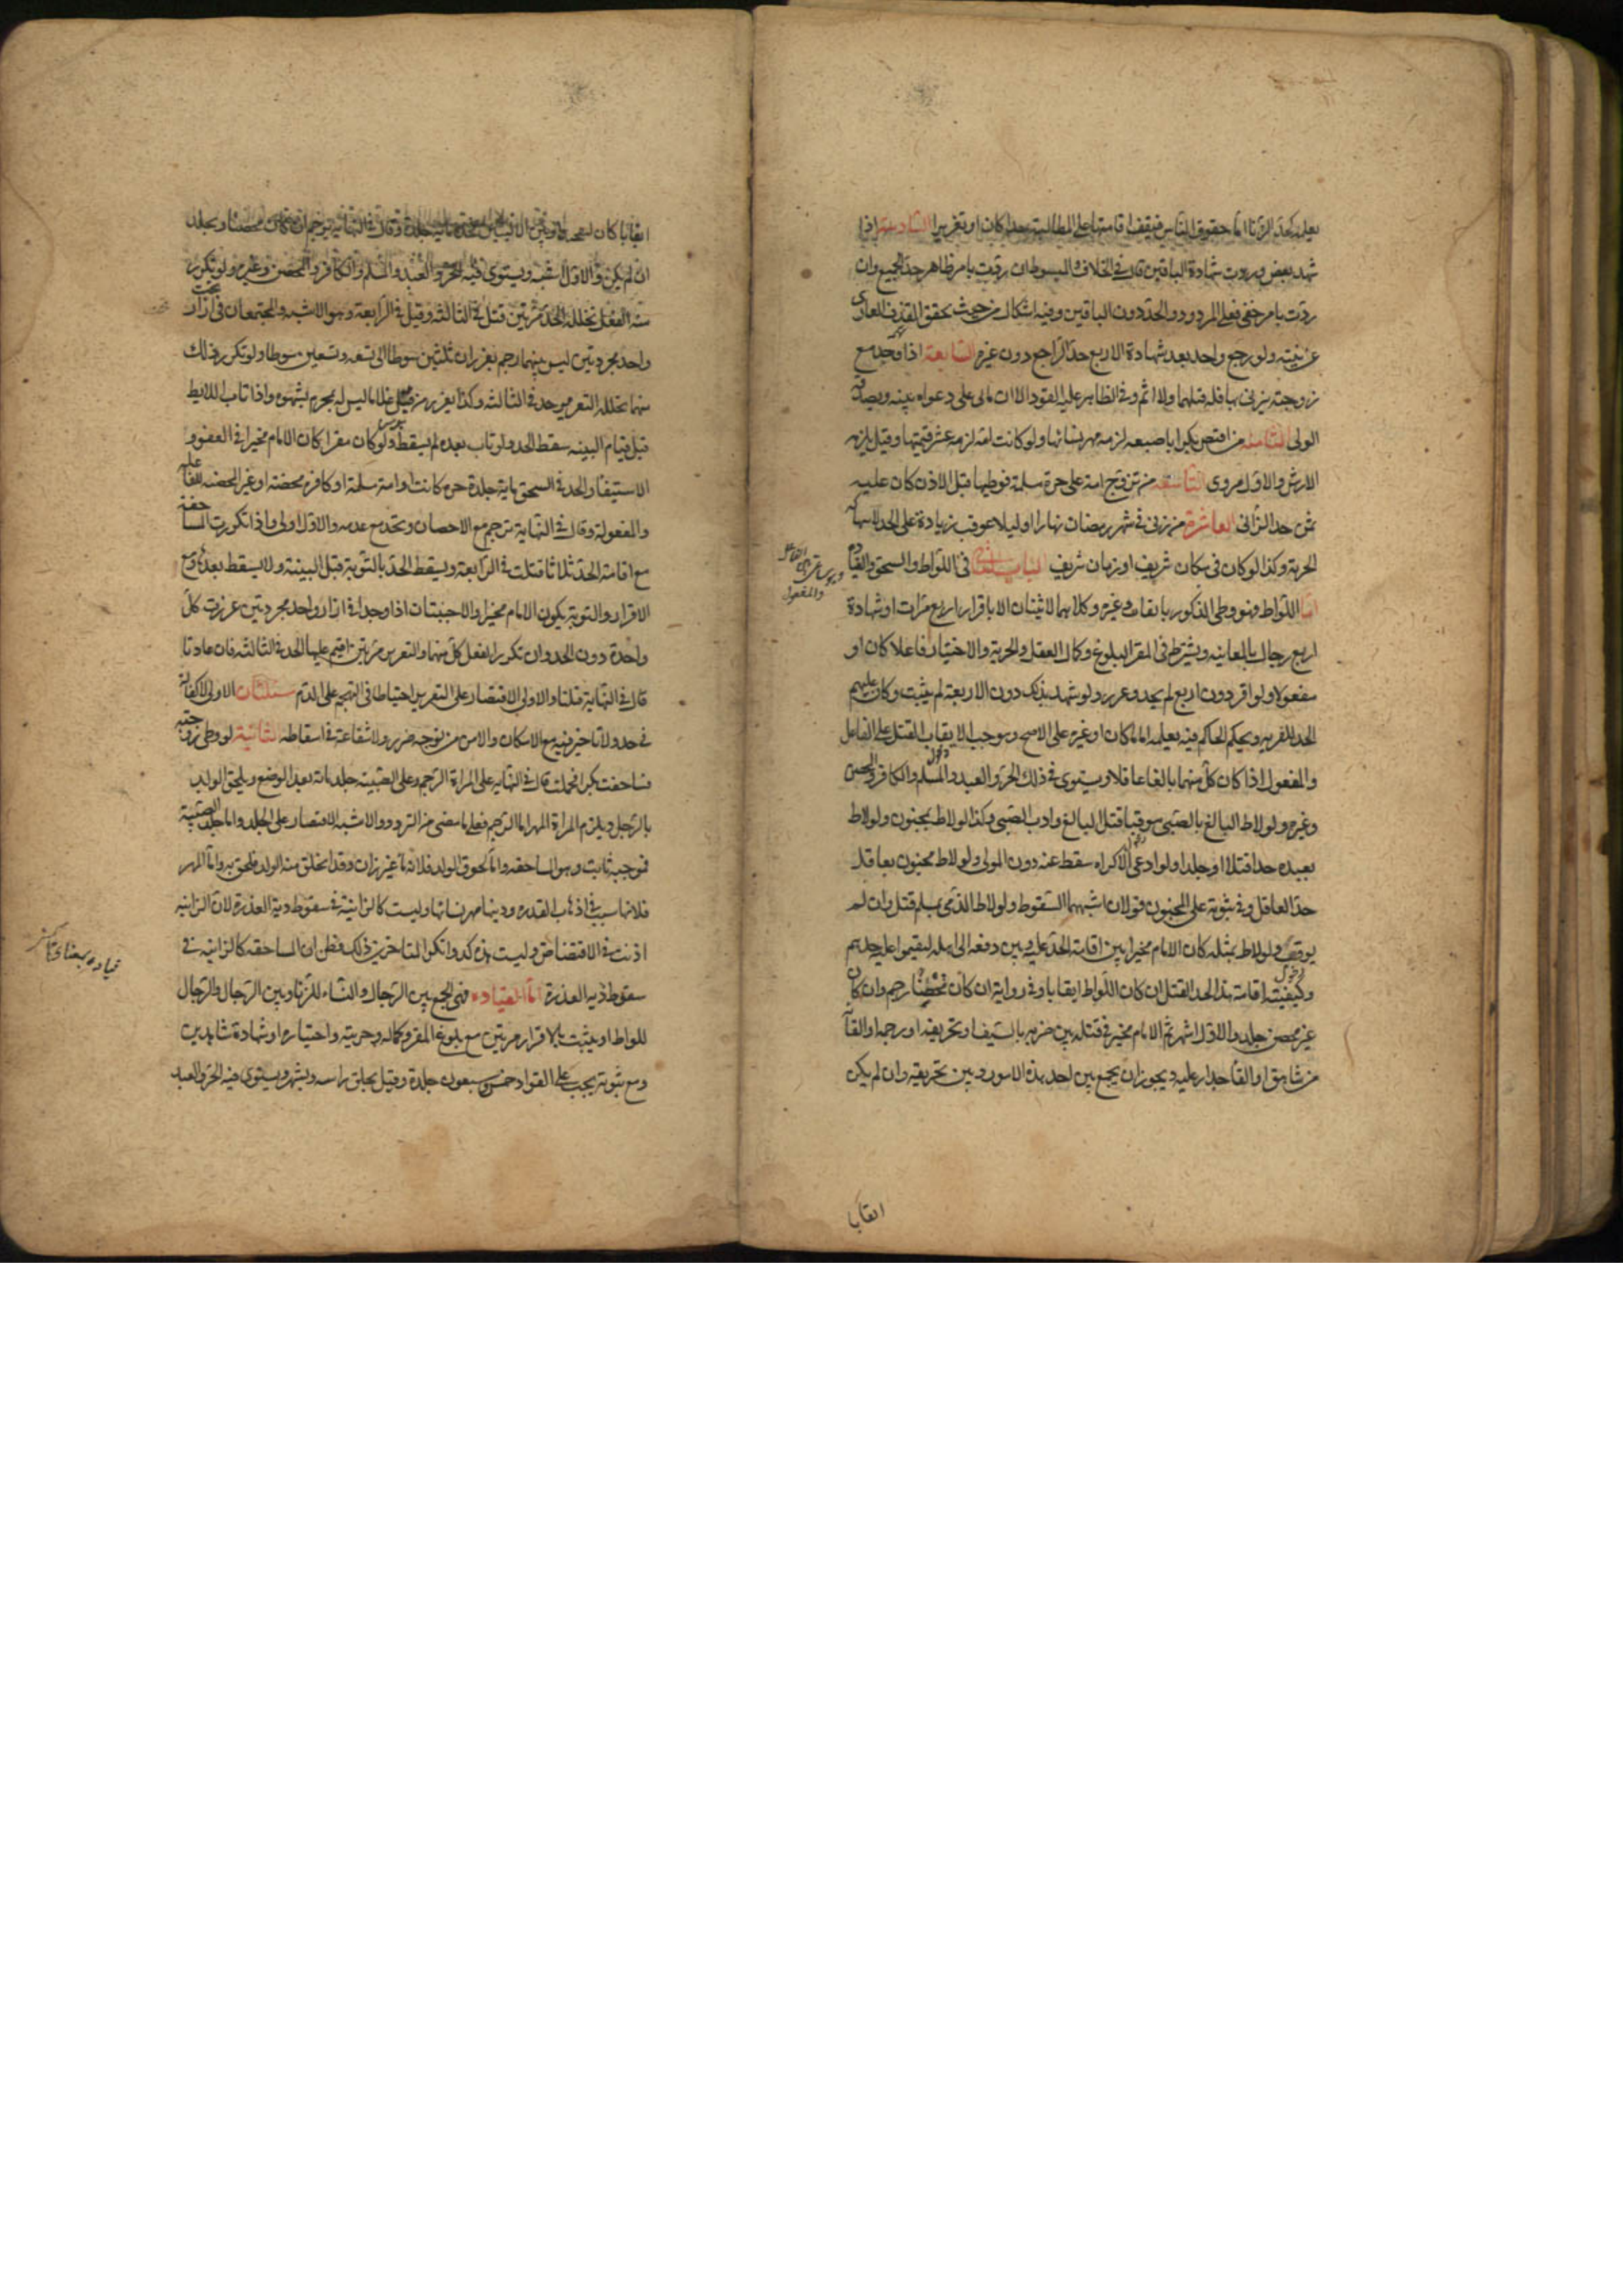 بعلمه كحد الزنا اما حقوق الناس فيقف اقامتها على المطالبة حدا كان او تعزيرا السادسة اذا
شهد بعض وردت شهادة الباقين قال في الخلاف والمبسوط ان ردت بامر ظاهر حد الجميع وان
ردت بامر خفي فعلى المردود الحد دون الباقين وفيه اشكال من حيث تحقق القذف العاري
عن بينة ولو رجع واحد بعد شهادة الاربع حد الراجع دون غيره السابعة اذا وجد مع
زوجته رجلا يزني بها فله قتلهما ولا اثم وفي الظاهر عليه القود الا ان ياتي على دعواه ببينة او يصدقه
الولي الثامنة من افتض بكرا باصبعه لزمه مهر نسائها ولو كانت امة لزمه عشر قيمتها وقيل يلزمه
الارش والاول مروي التاسعة من تزوج امة على حرة مسلمة فوطيها قبل الاذن كان عليه
ثمن حد الزاني العاشرة من زنى في شهر رمضان نهارا او ليلا عوقب زيادة على الحد لانتهاكه
الحرمة وكذا لو كان في مكان شريف او زمان شريف الباب الثاني في اللواط والسحق والقيادة
اما اللواط فهو وطي الذكور بايقاب وغيره وكلاهما لا يثبتان الا باقرار اربع مرات او شهادة
اربع رجال بالمعاينة ويشترط في المقر البلوغ وكمال العقل والحرية والاختيار فاعلا كان او
مفعولا ولو اقر دون اربع لم يحد وعزر ولو شهد بذلك دون الاربعة لم يثبت وكان عليهم
الحد للفرية ويحكم الحاكم فيه بعلمه اماما كان او غيره على الاصح وموجب الايقاب القتل على الفاعل
والمفعول اذا كان كل منهما بالغا عاقلا ويستوي في ذلك الحر والعبد والمسلم والكافر والمحصن
وغيره ولو لاط البالغ بالصبي موقبا قتل البالغ وادب الصبي وكذا لو لاط بمجنون ولو لاط
بعبده حدا قتلا او جلدا ولو ادعى الاكراه سقط عنه دون المولى ولو لاط مجنون بعاقل
حد العاقل وفي ثبوته على المجنون قولان اشبههما السقوط ولو لاط الذمي بمسلم قتل وان لم
يوقب ولو لاط بمثله كان الامام مخيرا بين اقامة الحد عليه وبين دفعه الى اهله ليقيموا عليه حدهم
وكيفية اقامة هذا الحد القتل ان كان اللواط ايقابا وفي رواية ان كان محصنا رجم وان كان
غير محصن جلد والاول اشهر ثم الامام مخير في قتله بين ضربه بالسيف او تحريقه او رجمه او القائه
من شاهق او القاء جدار عليه ويجوز ان يجمع بين احد هذه الامور وبين تحريقه وان لم يكن
الفاعل
والمفعول
ايقابا
ايقابا كان
وقال في النهاية يرجم ان كان محصنا ويجلد
ان لم يكن والاول اشبه ويستوي فيه الحر والعبد والمسلم والكافر والمحصن وغيره ولو تكرر
منه الفعل وتخلله الحد مرتين قتل في الثالثة وقيل في الرابعة وهو الاشبه والمجتمعان تحت ازار
واحد مجردين ليس بينهما رحم يعزران من ثلثين سوطا الى تسعة وتسعين سوطا ولو تكرر ذلك
منهما وتخلله التعزير حد في الثالثة وكذا يعزر من قبل غلاما ليس له بمحرم بشهوة واذا تاب اللايط
قبل قيام البينة سقط الحد ولو تاب بعده لم يسقط ولو كان مقرا كان الامام مخيرا في العفو و
الاستيفاء والحد في السحق ماية جلدة حرة كانت او امة مسلمة او كافرة محصنة او غير المحصنة للفاعلة
والمفعولة وقال في النهاية ترجم مع الاحصان وتحد مع عدمه والاول اولى واذا تكررت المساحقة
مع اقامة الحد ثلاثا قتلت في الرابعة ويسقط الحد بالتوبة قبل البينة ولا يسقط بعدها ومع
الاقرار والتوبة يكون الامام مخيرا والاجنبيتان اذا وجدتا في ازار واحد مجردتين عزرت كل
واحدة دون الحد وان تكرر الفعل منهما والتعزير مرتين اقيم عليهما الحد في الثالثة فان عادتا
قال في النهاية قتلتا والاولى الاقتصار على التعزير احتياطا في التهجم على الدم مسئلتان الاولى لا كفالة
في حد ولا تاخير فيه مع الامكان والامن من توجه ضرر ولا شفاعة في اسقاطه الثانية لو وطي زوجته
فساحقت بكرا فحملت قال في النهاية على المراة الرجم وعلى الصبية جلد ماية بعد الوضع ويلحق الولد
بالرجل ويلزم المراة المهر اما الرجم فعلى ما مضى من التردد والاشبه الاقتصار على الجلد واما جلد الصبية
فموجبه ثابت وهو المساحقة واما لحوق الولد فلانه ماء غير زان وقد انخلق منه الولد فلحق به واما المهر
فلانها سبب في اذهاب العذرة وديتها مهر نسائها وليست كالزانية في سقوط دية العذرة لان الزانية
اذنت في الافتضاض وليست هذه كذا وانكر المتاخرين ذلك فظن ان المساحقة كالزانية في
سقوط دية العذرة اما القيادة فهي الجمع بين الرجال والنساء للزنا وبين الرجال والرجال
للواط او يثبت بالاقرار مرتين مع بلوغ المقر وكماله وحريته واختياره او شهادة شاهدين
ومع ثبوته يجب على القواد خمس وسبعون جلدة وقيل يحلق راسه ويشهر ويستوي فيه الحر والعبد
قياده بمعنى